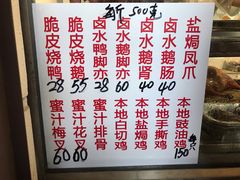 每斤 500克
脆皮烧鸭
28
脆皮烧鹅
55
卤水鸭脚亦
28
卤水鹅脚亦
60
卤水鹅肾
40
卤水鹅肠
40
盐焗凤爪
蜜汁梅叉
60
蜜汁花叉
60
蜜汁排骨
本地白切鸡
本地盐焗鸡
本地手撕鸡
本地豉油鸡
150